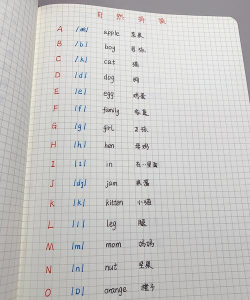 自然拼读
A /æ/ apple 苹果
B /b/ boy 男孩
C /k/ cat 猫
D /d/ dog 狗
E /e/ egg 鸡蛋
F /f/ family 家庭
G /g/ girl 女孩
H /h/ hen 母鸡
I /ɪ/ in 在…里面
J /dʒ/ jam 果酱
K /k/ kitten 小猫
L /l/ leg 腿
M /m/ mom 妈妈
N /n/ nut 坚果
O /ɒ/ orange 橙子